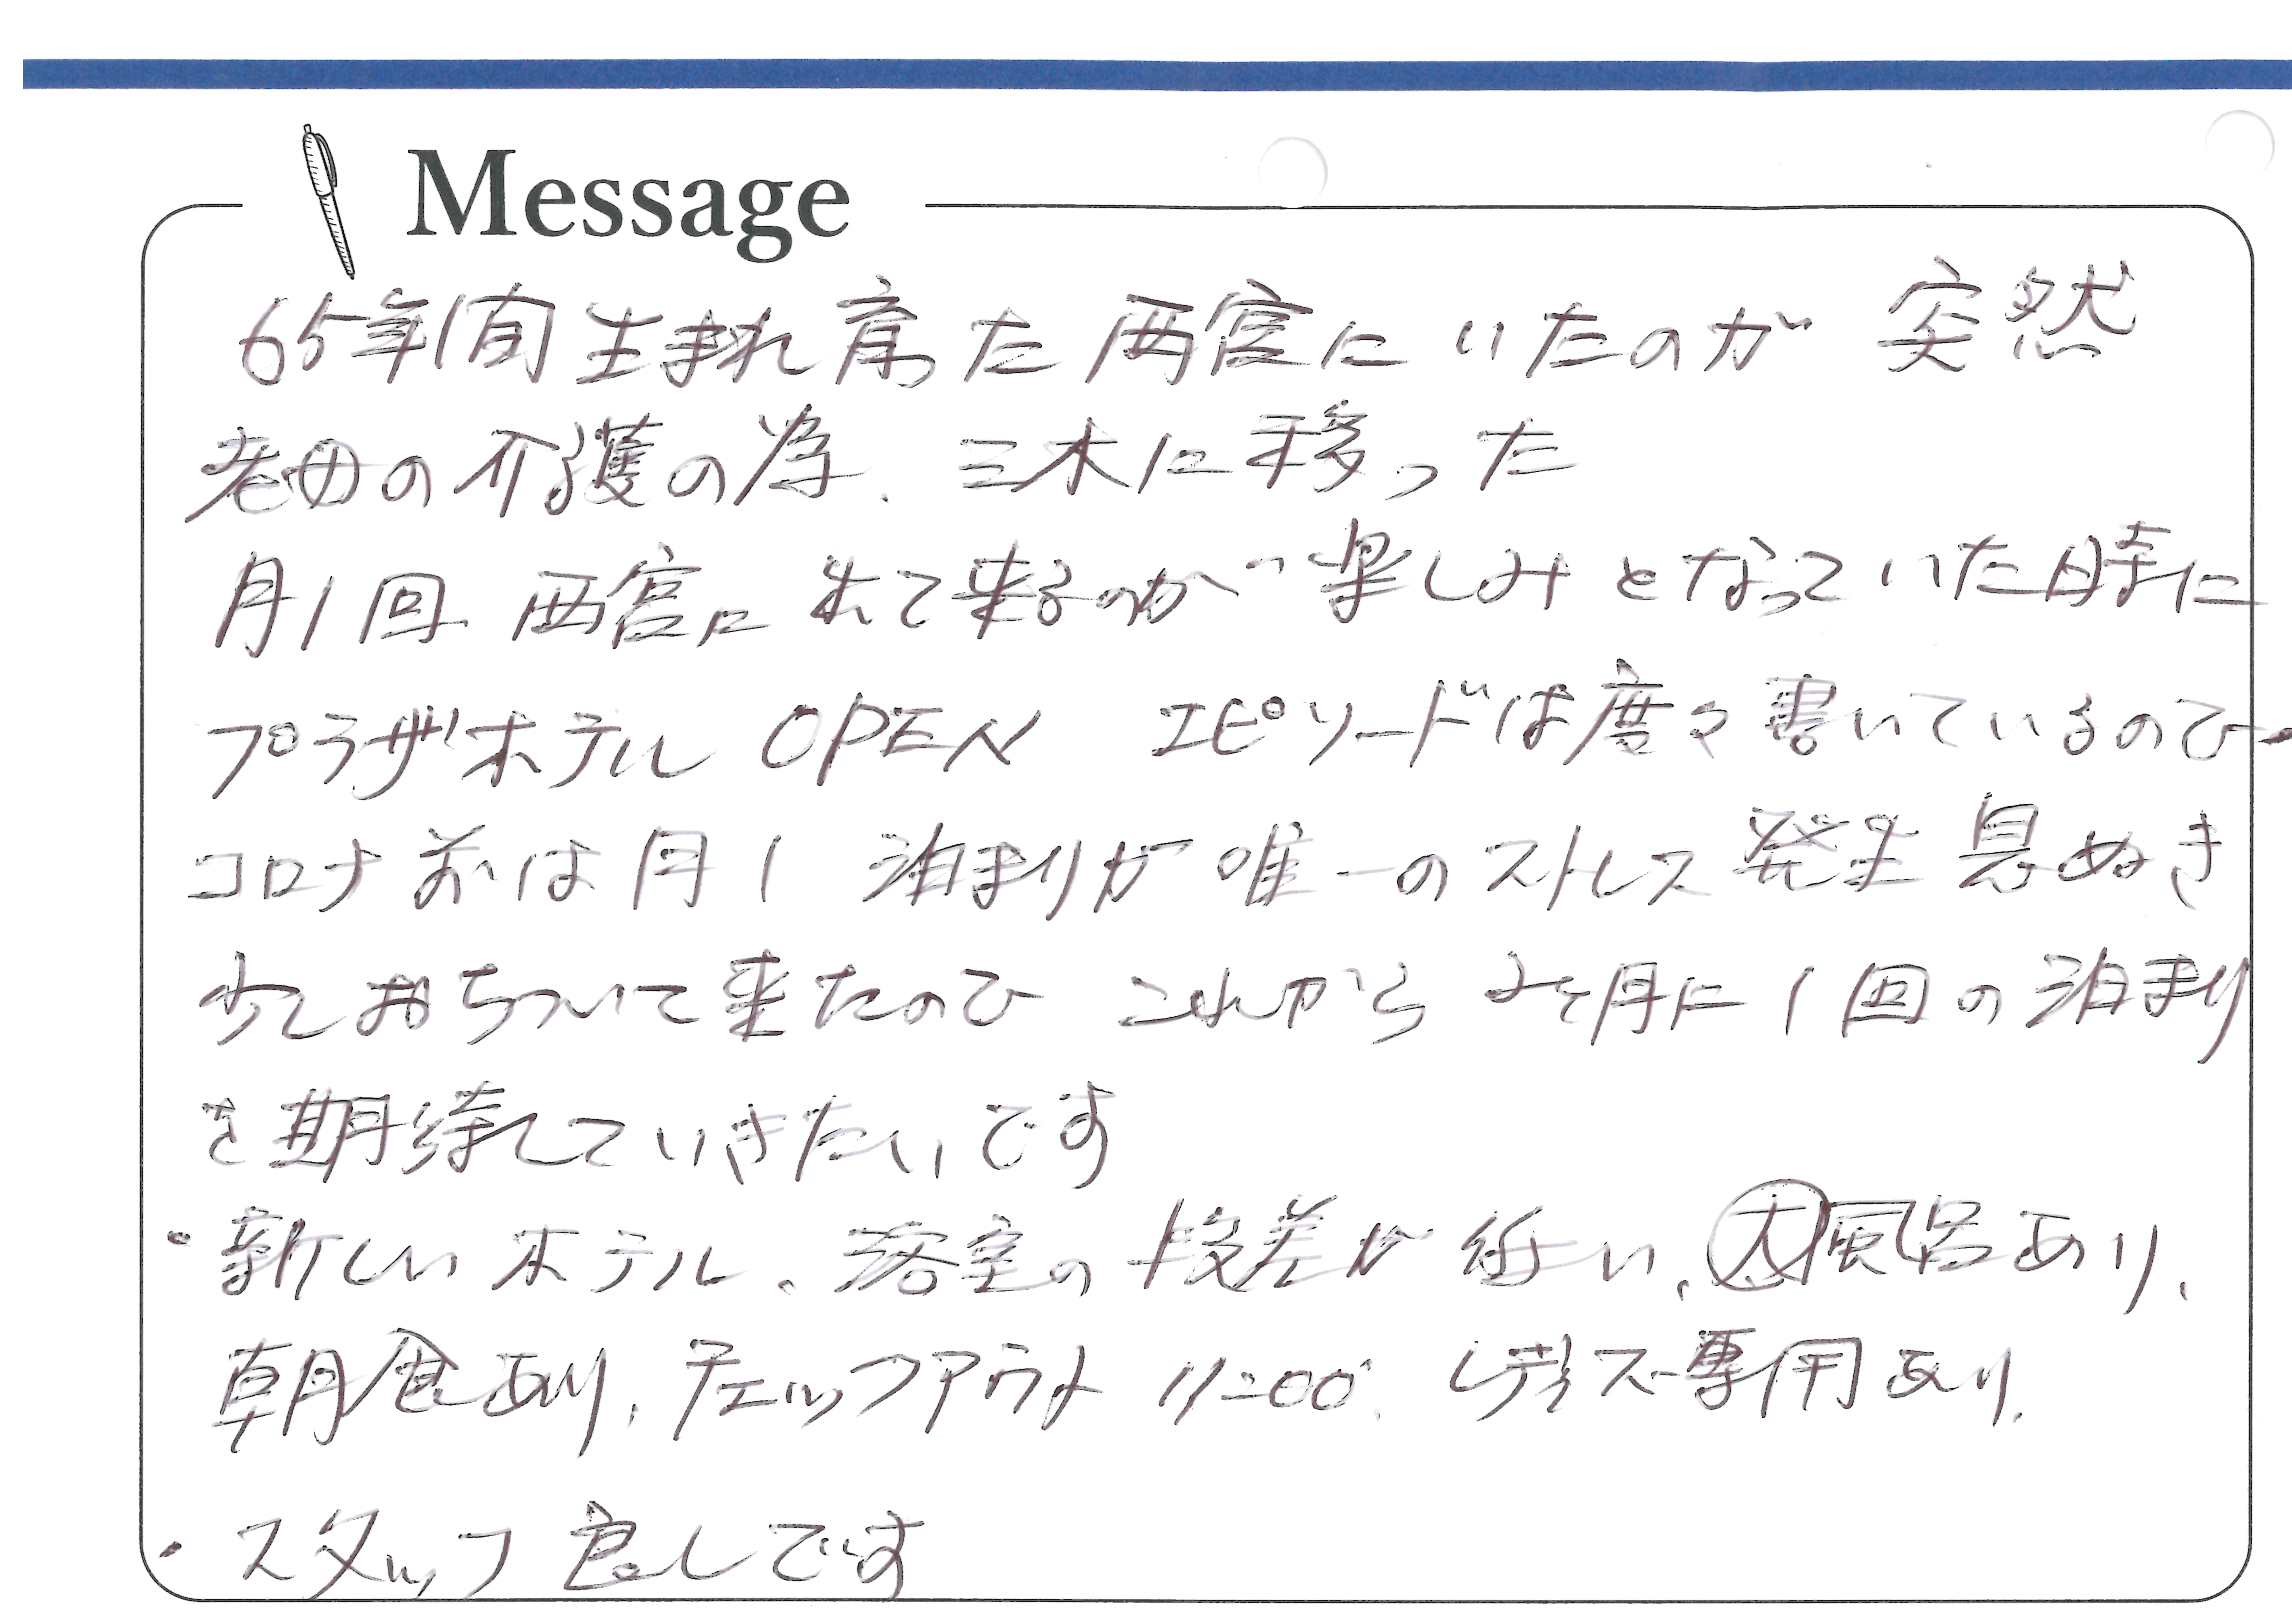 Message
65年間生まれ育った西宮にいたのが 突然
老母の介護の為、三木に移った
月1回 西宮に出て来るのが 楽しみとなっていた時に
プラザホテル OPEN エピソードは度々書いているので
コロナ前は月1 泊まりが唯一のストレス発生 息ぬき
少しおちついて来たので これから 2ヶ月に1回の泊まり
を期待していきたいです
・新しいホテル、浴室の段差が低い、大風呂あり、
朝食あり、チェックアウト 11:00、レディス専用あり、
・スタッフ良しです